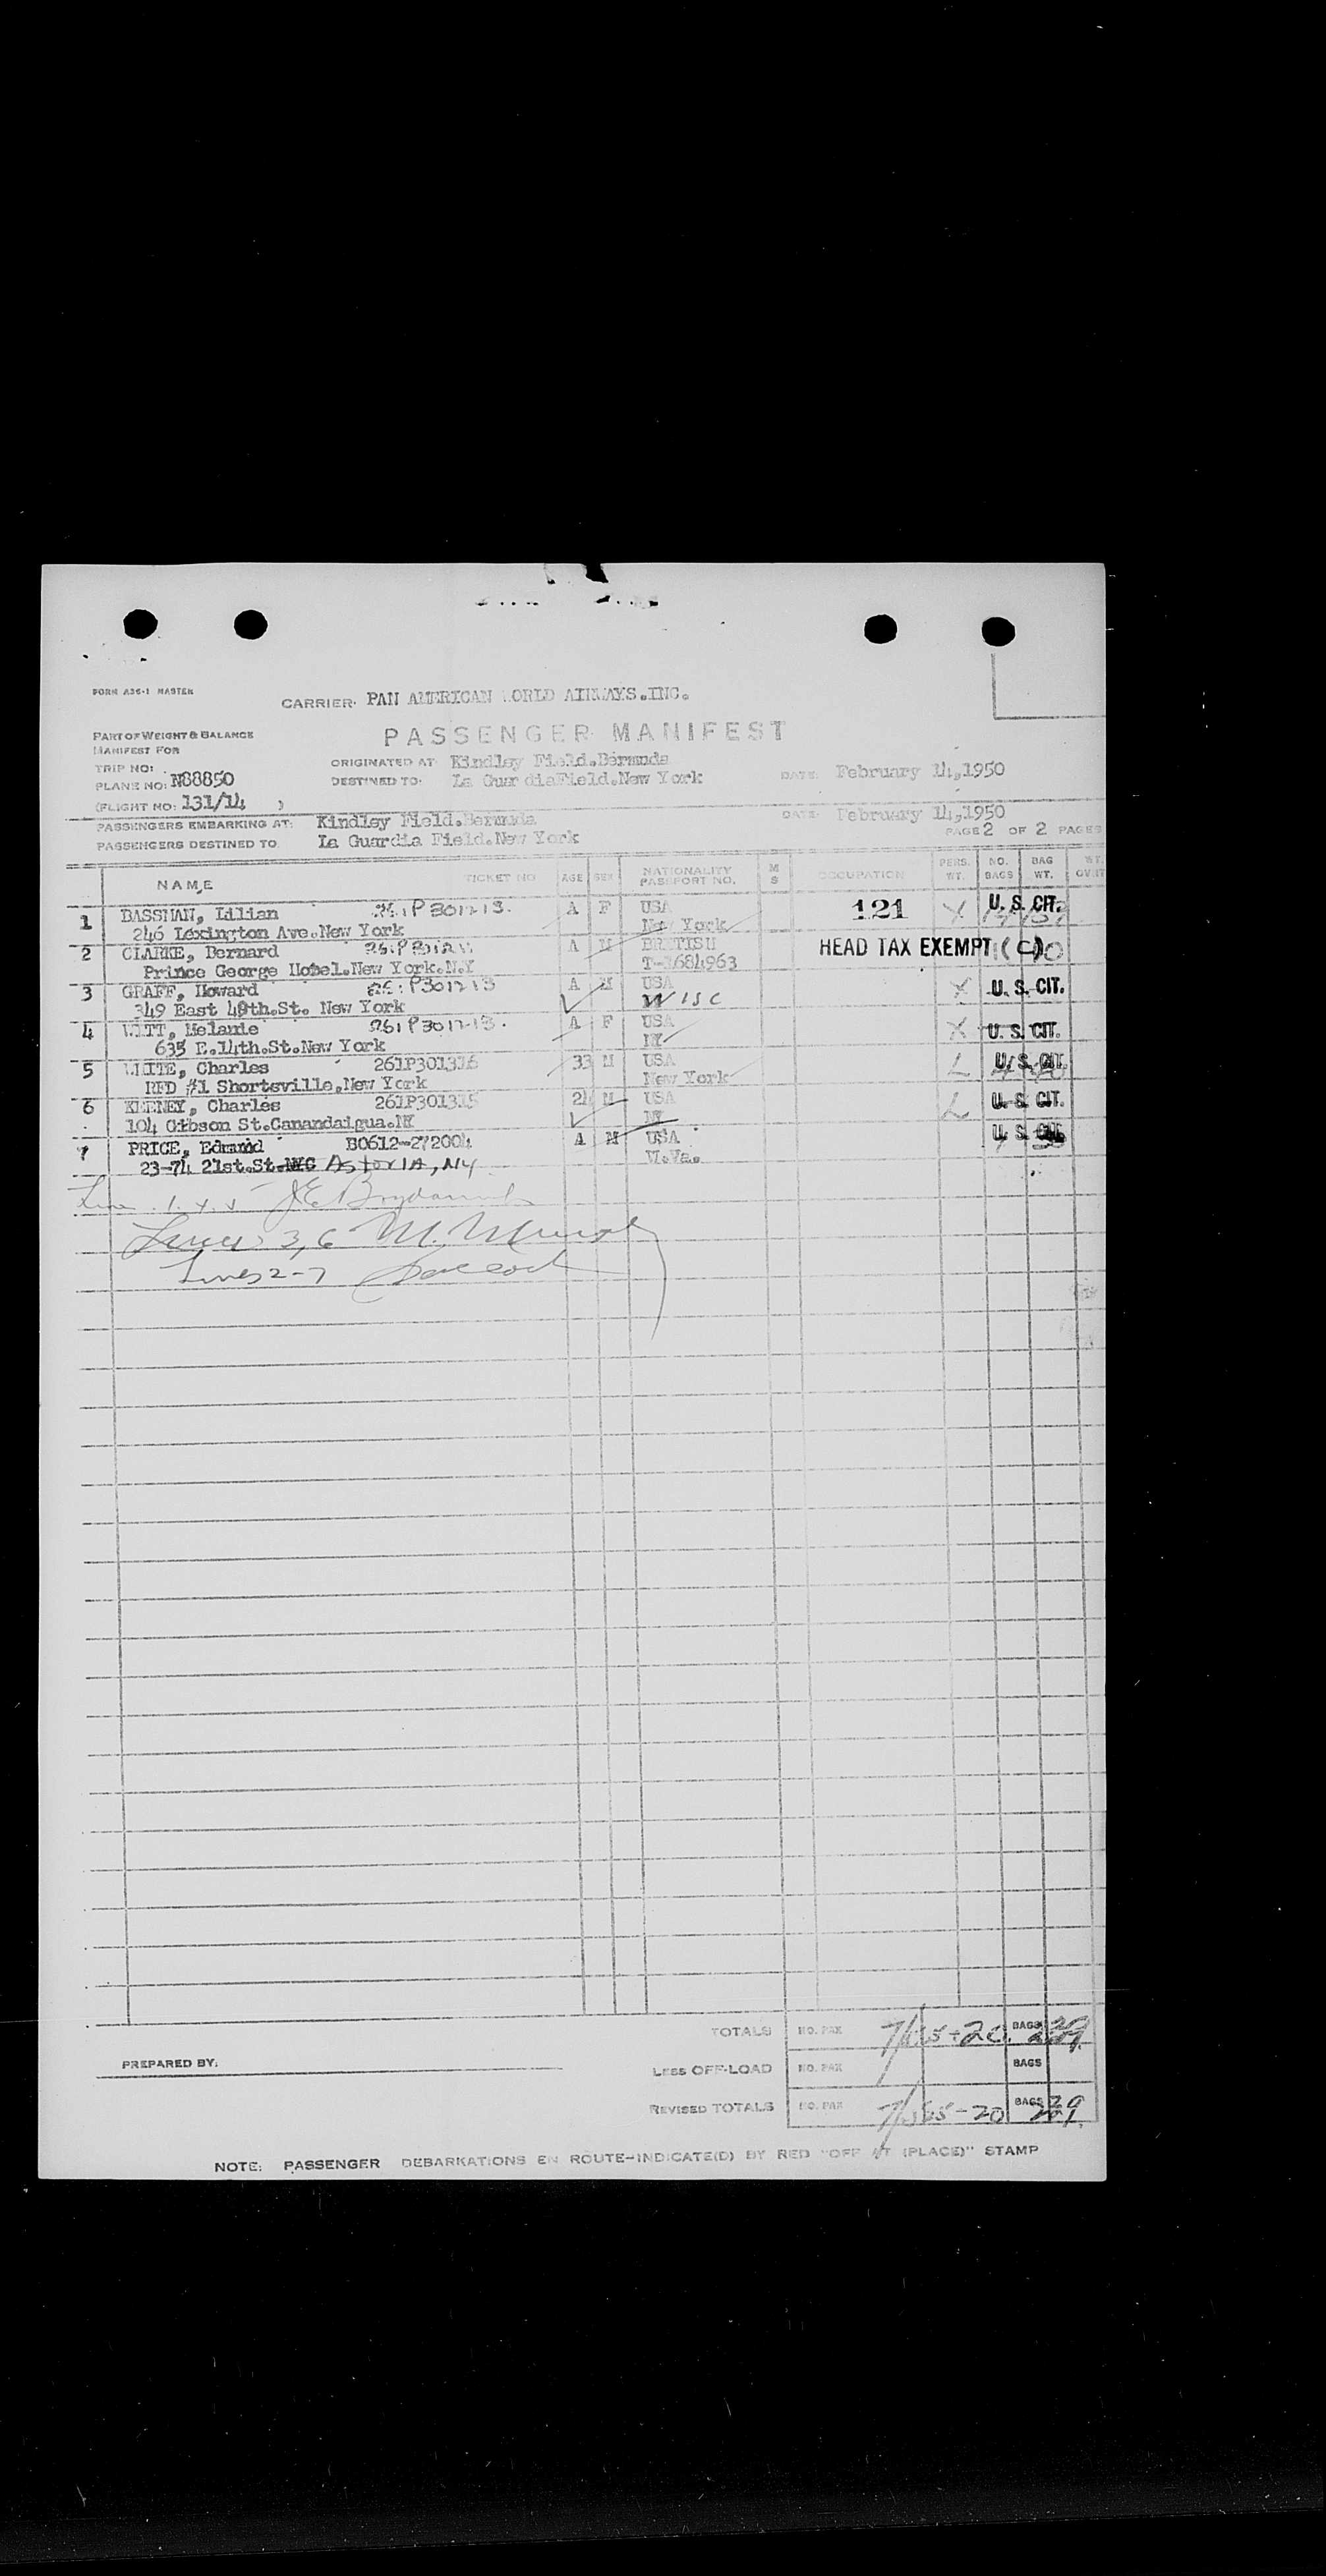 FORM A36-1 MASTER
CARRIER: PAN AMERICAN WORLD AIRWAYS.INC.
PASSENGER MANIFEST
PART OF WEIGHT & BALANCE
MANIFEST FOR
TRIP NO:
PLANE NO: N88850
(FLIGHT NO: 131/14 )
ORIGINATED AT Kindley Field.Bermuda
DESTINED TO: La GuardiaField.New York DATE: February 14,1950
PASSENGERS EMBARKING AT: Kindley Field.Bermuda DATE: February 14,1950
PASSENGERS DESTINED TO La Guardia Field.New York PAGE 2 OF 2 PAGES
NAME TICKET NO AGE SEX NATIONALITY PASSPORT NO. M S OCCUPATION PERS. WT. NO. BAGS BAG WT.
1 BASSMAN, Lilian A F USA 121 U. S. CIT.
246 Lexington Ave.New York New York
2 CLARKE, Bernard A M BRITISH HEAD TAX EXEMPT (C)
Prince George Hotel.New York.N.Y
3 GRAFF, Howard A M USA U. S. CIT.
349 East 49th.St. New York WISC
4 WITT, Melanie A F USA U. S. CIT.
635 E.14th.St.New York NY
5 WHITE, Charles 261P301316 33 M USA U. S. CIT.
RFD #1 Shortsville,New York New York
6 KEENEY, Charles 261P301315 24 M USA U. S. CIT.
104 Gibson St.Canandaigua.NY NY
7 PRICE, Edmund B0612-272004 A M USA U. S. CIT.
23-74 21st.St.NYC Astoria, NY W.Va.
Lines 3,6 M.
Lines 2-7
TOTALS NO. PAX BAGS
PREPARED BY:
LESS OFF-LOAD NO. PAX BAGS
REVISED TOTALS NO. PAX BAGS
NOTE: PASSENGER DEBARKATIONS EN ROUTE-INDICATE(D) BY RED "OFF AT (PLACE)" STAMP